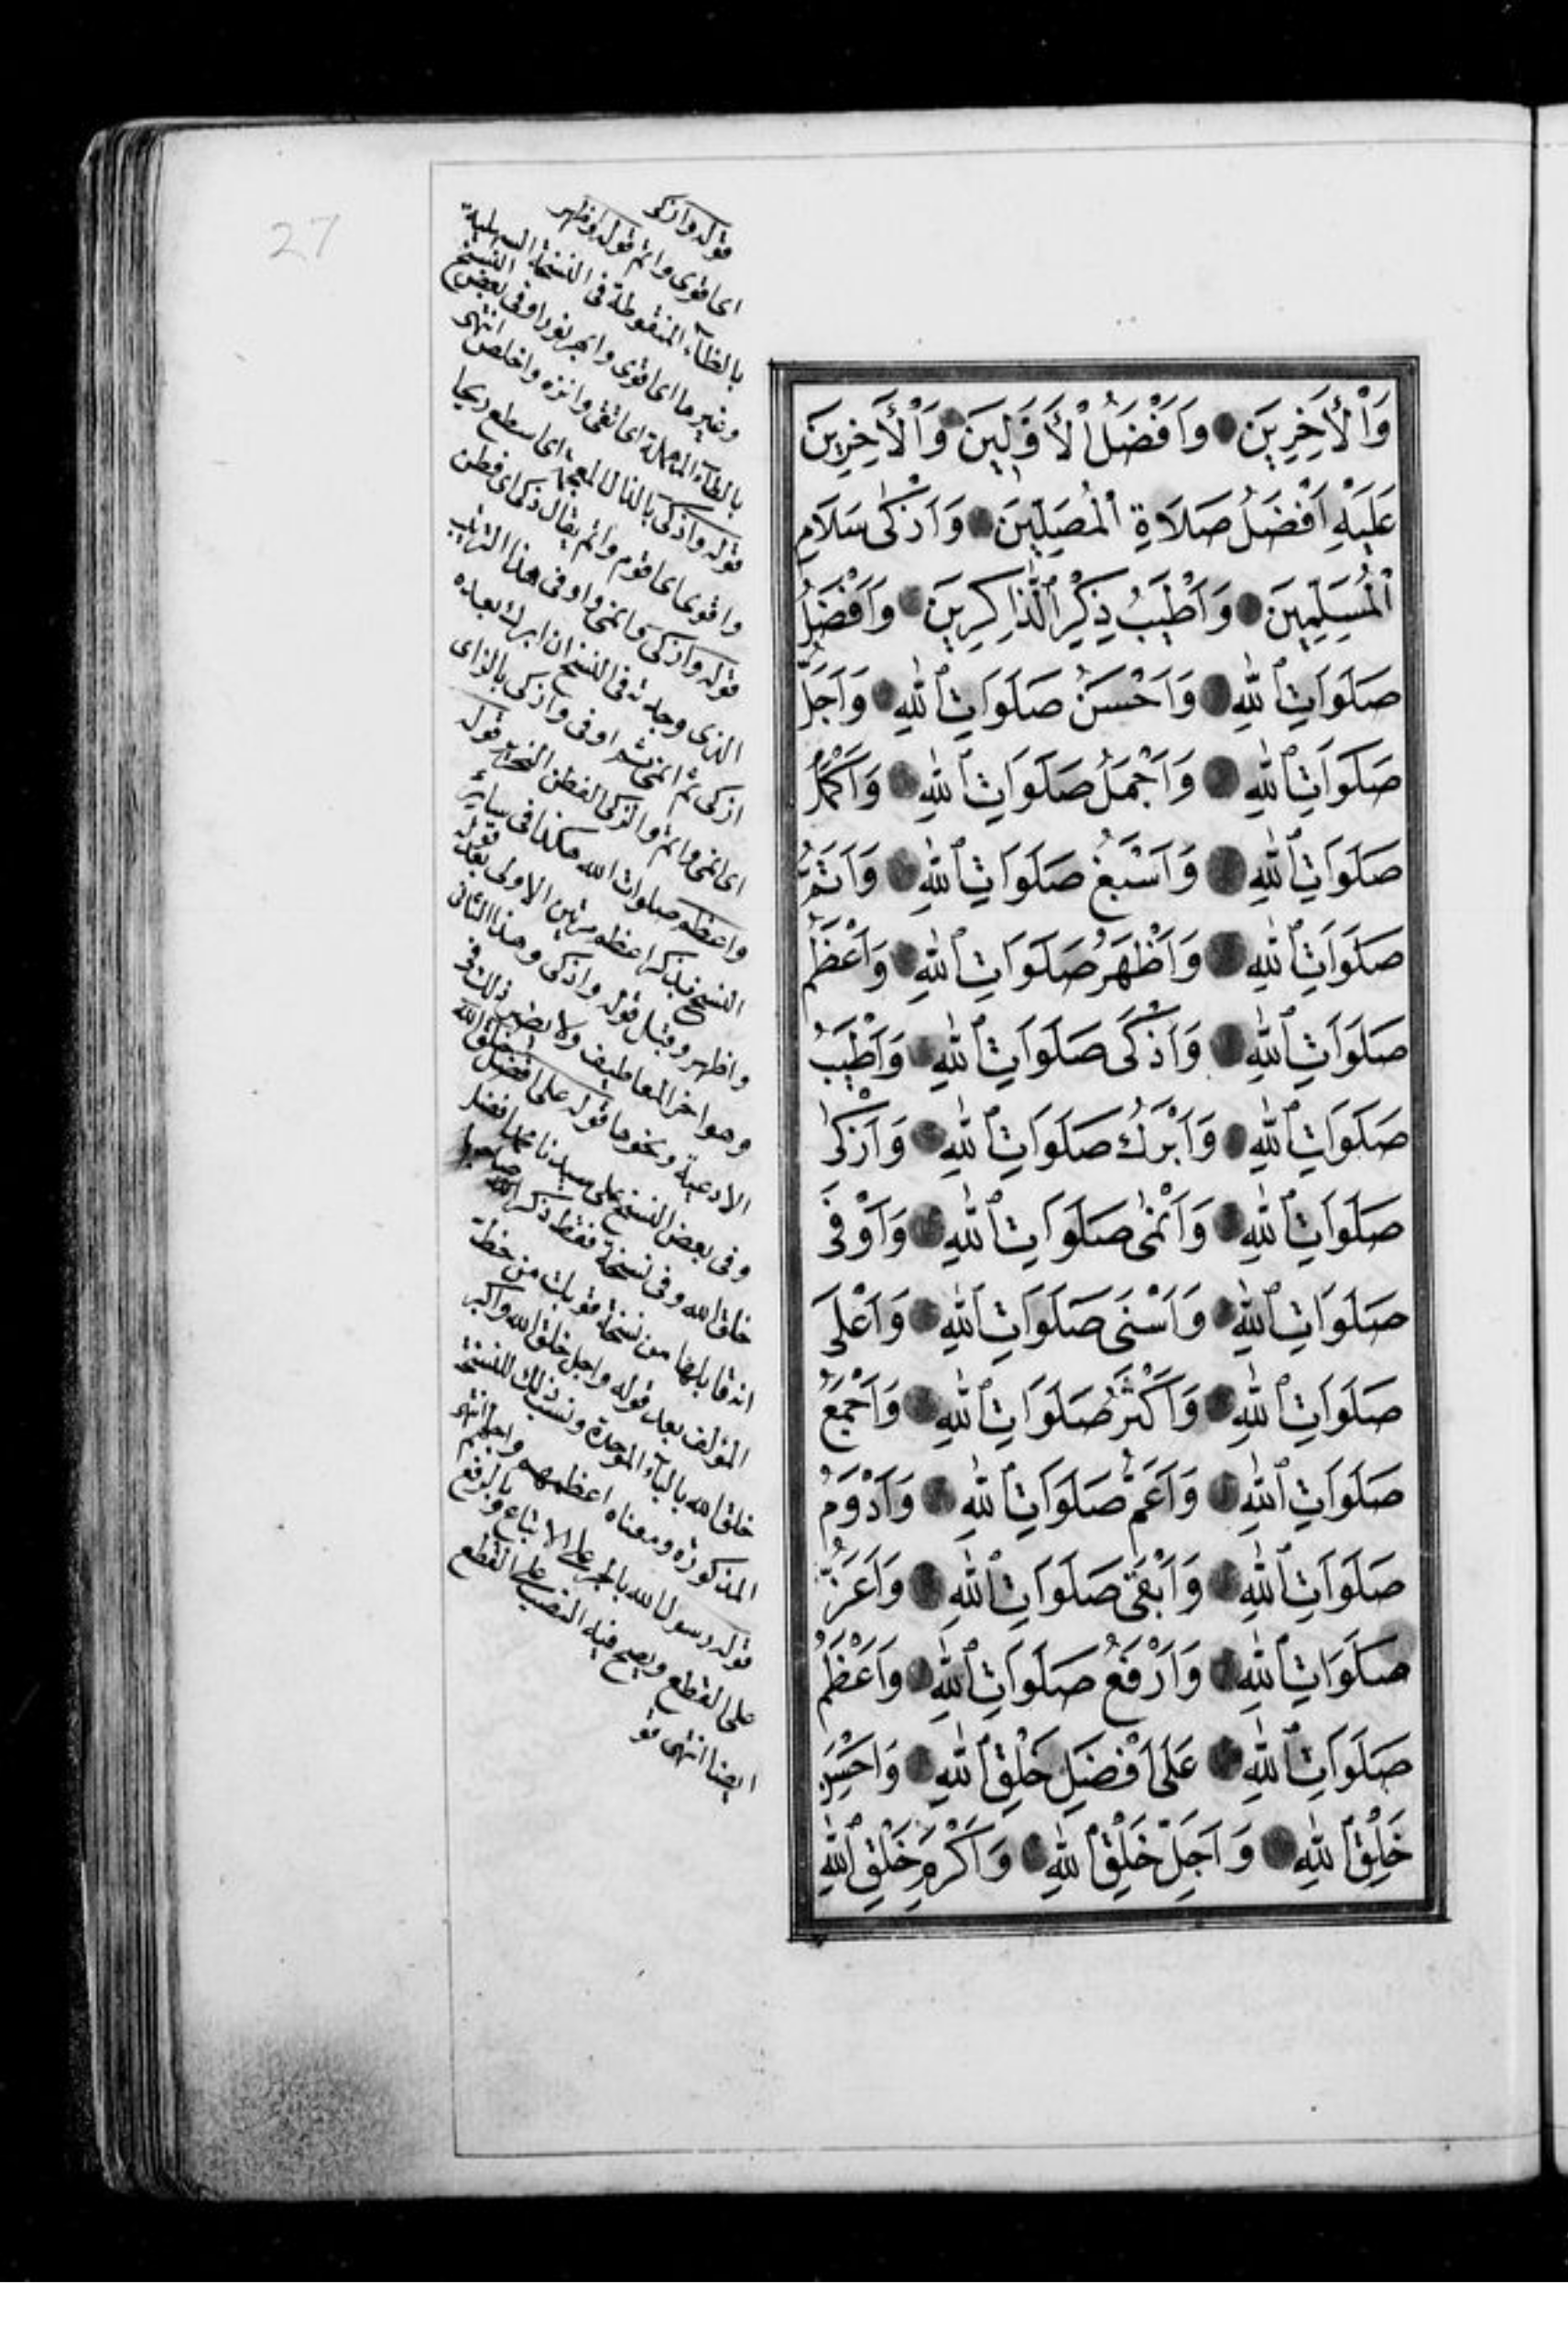 27
وَالْأٰخِرِينَ وَاَفْضَلُ الْاَوَّلِينَ وَالْأٰخِرِينَ
عَلَيْهِ اَفْضَلُ صَلَاةِ الْمُصَلِّينَ وَاَزْكٰى سَلَامِ
الْمُسَلِّمِينَ وَاَطْيَبُ ذِكْرِ الذَّاكِرِينَ وَاَفْضَلُ
صَلَوَاتِ اللهِ وَاَحْسَنُ صَلَوَاتِ اللهِ وَاَجَلُّ
صَلَوَاتِ اللهِ وَاَجْمَلُ صَلَوَاتِ اللهِ وَاَكْمَلُ
صَلَوَاتِ اللهِ وَاَسْبَغُ صَلَوَاتِ اللهِ وَاَتَمُّ
صَلَوَاتِ اللهِ وَاَظْهَرُ صَلَوَاتِ اللهِ وَاَعْظَمُ
صَلَوَاتِ اللهِ وَاَذْكَى صَلَوَاتِ اللهِ وَاَطْيَبُ
صَلَوَاتِ اللهِ وَاَبْرَكُ صَلَوَاتِ اللهِ وَاَزْكٰى
صَلَوَاتِ اللهِ وَاَنْمٰى صَلَوَاتِ اللهِ وَاَوْفَى
صَلَوَاتِ اللهِ وَاَسْنَى صَلَوَاتِ اللهِ وَاَعْلَى
صَلَوَاتِ اللهِ وَاَكْثَرُ صَلَوَاتِ اللهِ وَاَجْمَعُ
صَلَوَاتِ اللهِ وَاَعَمُّ صَلَوَاتِ اللهِ وَاَدْوَمُ
صَلَوَاتِ اللهِ وَاَبْقَى صَلَوَاتِ اللهِ وَاَعَزُّ
صَلَوَاتِ اللهِ وَاَرْفَعُ صَلَوَاتِ اللهِ وَاَعْظَمُ
صَلَوَاتِ اللهِ عَلَى اَفْضَلِ خَلْقِ اللهِ وَاَحْسَنِ
خَلْقِ اللهِ وَاَجَلِّ خَلْقِ اللهِ وَاَكْرَمِ خَلْقِ اللهِ
قوله وازكى
اى اقوى واتم قوله واظهر
بالظاء المنقوطة فى النسخة السهلية
وغيرها اى اقوى وابهر نورا وفى بعض النسخ
بالطاء المهملة اى اتقى وانزه واخلص انتهى
قوله واذكى بالذال المعجمة اى اسطع ريحا
واقوى اى اقوم واتم يقال ذكى اى فطن
قوله وازكى وانمى واوفى هذا الترتيب
الذى وجدته فى النسخ ان ابرك بعده
ازكى ثم انمى ثم اوفى وازكى بالزاى
اى انمى واتم والزكى الفطن النحرير قوله
واعظم صلوات الله هكذا فى سائر
النسخ بذكر اعظم مرتين الاولى بعد قوله
واظهر وقبل قوله واذكى وهذا الثانى
وهو اخر المعاطيف ولا يضير ذلك فى
الادعية ونحوها قوله على افضل خلق الله
وفى بعض النسخ على سيدنا محمد افضل
خلق الله وفى نسخة فقط ذكر صاحبها
انه قابلها من نسخة قوبلت من خط
المؤلف بعد قوله واجل خلق الله واكبر
خلق الله بالباء الموحدة ونسب ذلك للنسخة
المذكورة ومعناه اعظمهم واجلهم انتهى
قوله رسول الله بالجر على الاتباع وبالرفع
على القطع ويصح فيه النصب على القطع
ايضا انتهى